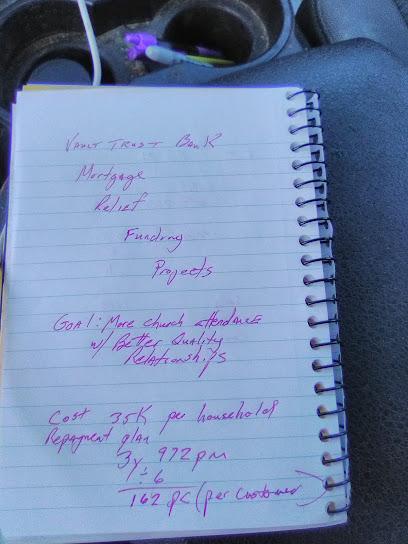 VAULT TRUST BANK
Mortgage
Relief
Funding
Projects
GOAL: More church attendance
w/ Better Quality
Relationships
Cost 35K per household
Repayment plan
3y 972 pm
÷ 6
162 pc (per customer)